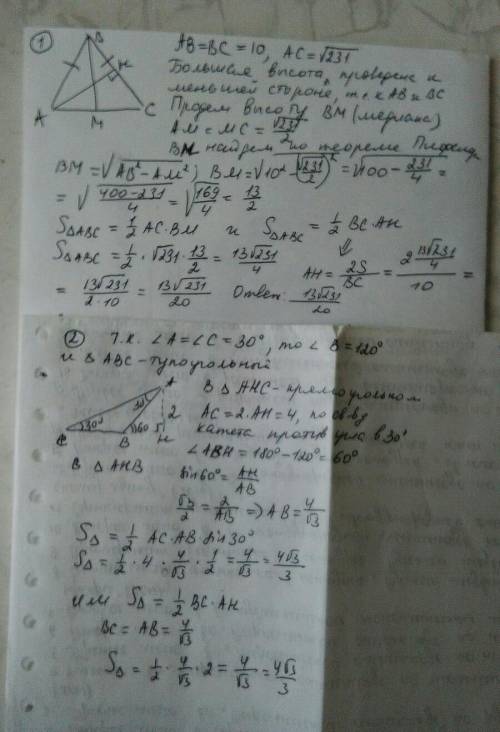 ① AB=BC=10, AC=√231
Большая высота, проведена к
меньшей стороне, т.к AB и BC
Проведем высоту BM (медиана)
AM = MC = √231/2
BM найдем по теореме Пифагора
B
H
A M C
BM = √(AB² - AM²); BM = √(10² - (√231/2)²) = √(100 - 231/4) =
= √((400-231)/4) = √(169/4) = 13/2
S△ABC = 1/2 AC·BM и S△ABC = 1/2 BC·AH
⇓
S△ABC = 1/2 · √231 · 13/2 = 13√231/4 AH = 2S/BC = (2 13√231/4)/10 =
= 13√231/(2·10) = 13√231/20 Ответ: 13√231/20
② Т.к. ∠A=∠C=30°, то ∠B=120°
и △ABC - тупоугольный
A
30°
2
C 30° B 60° H
В △AHC - прямоугольном
AC = 2·AH = 4, по св-ву
катета против угла в 30°
∠ABH = 180° - 120° = 60°
В △AHB sin60° = AH/AB
√3/2 = 2/AB ⇒ AB = 4/√3
S△ = 1/2 AC·AB sin30°
S△ = 1/2 · 4 · 4/√3 · 1/2 = 4/√3 = 4√3/3
или S△ = 1/2 BC·AH
BC = AB = 4/√3
S△ = 1/2 · 4/√3 · 2 = 4/√3 = 4√3/3